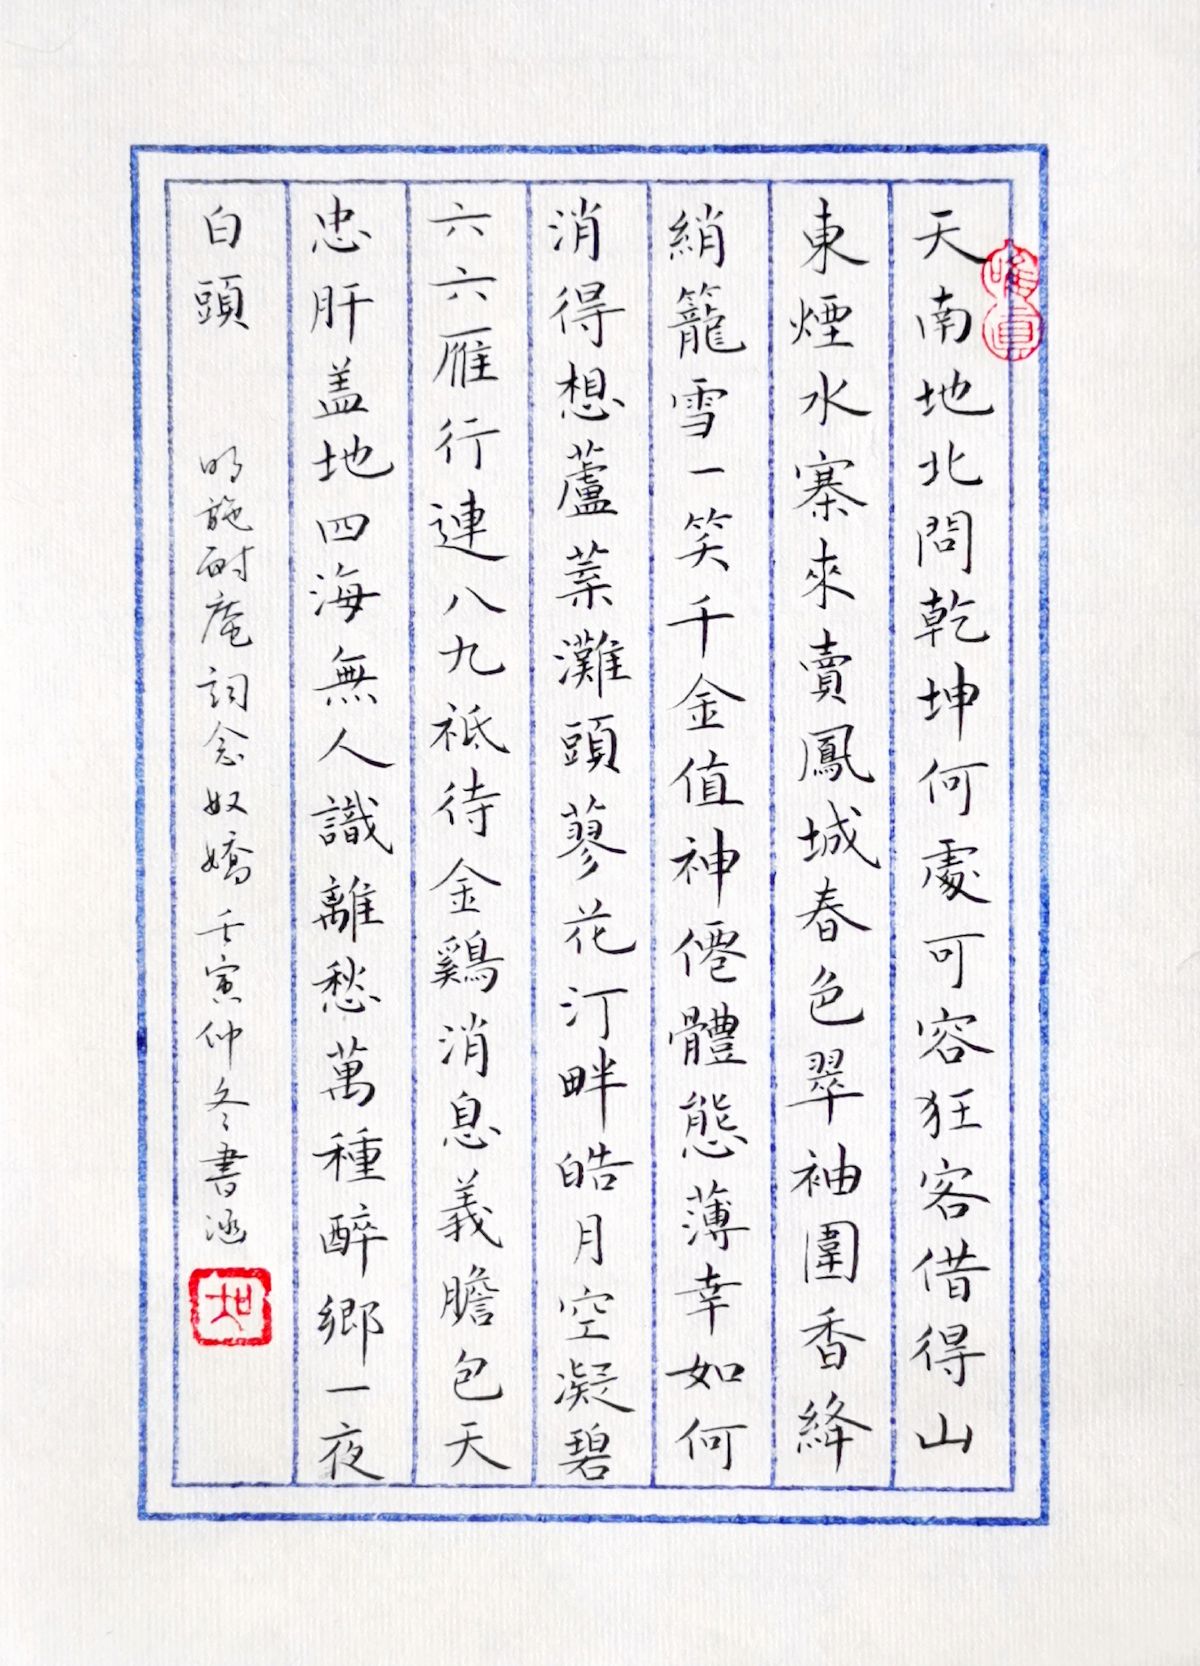 天南地北問乾坤何處可容狂客借得山
東煙水寨來買鳳城春色翠袖圍香絳
綃籠雪一笑千金值神僊體態薄幸如何
消得想蘆葉灘頭蓼花汀畔皓月空凝碧
六六雁行連八九祗待金鷄消息義膽包天
忠肝盖地四海無人識離愁萬種醉鄉一夜
白頭
明施耐庵詞念奴嬌壬寅仲冬書涵